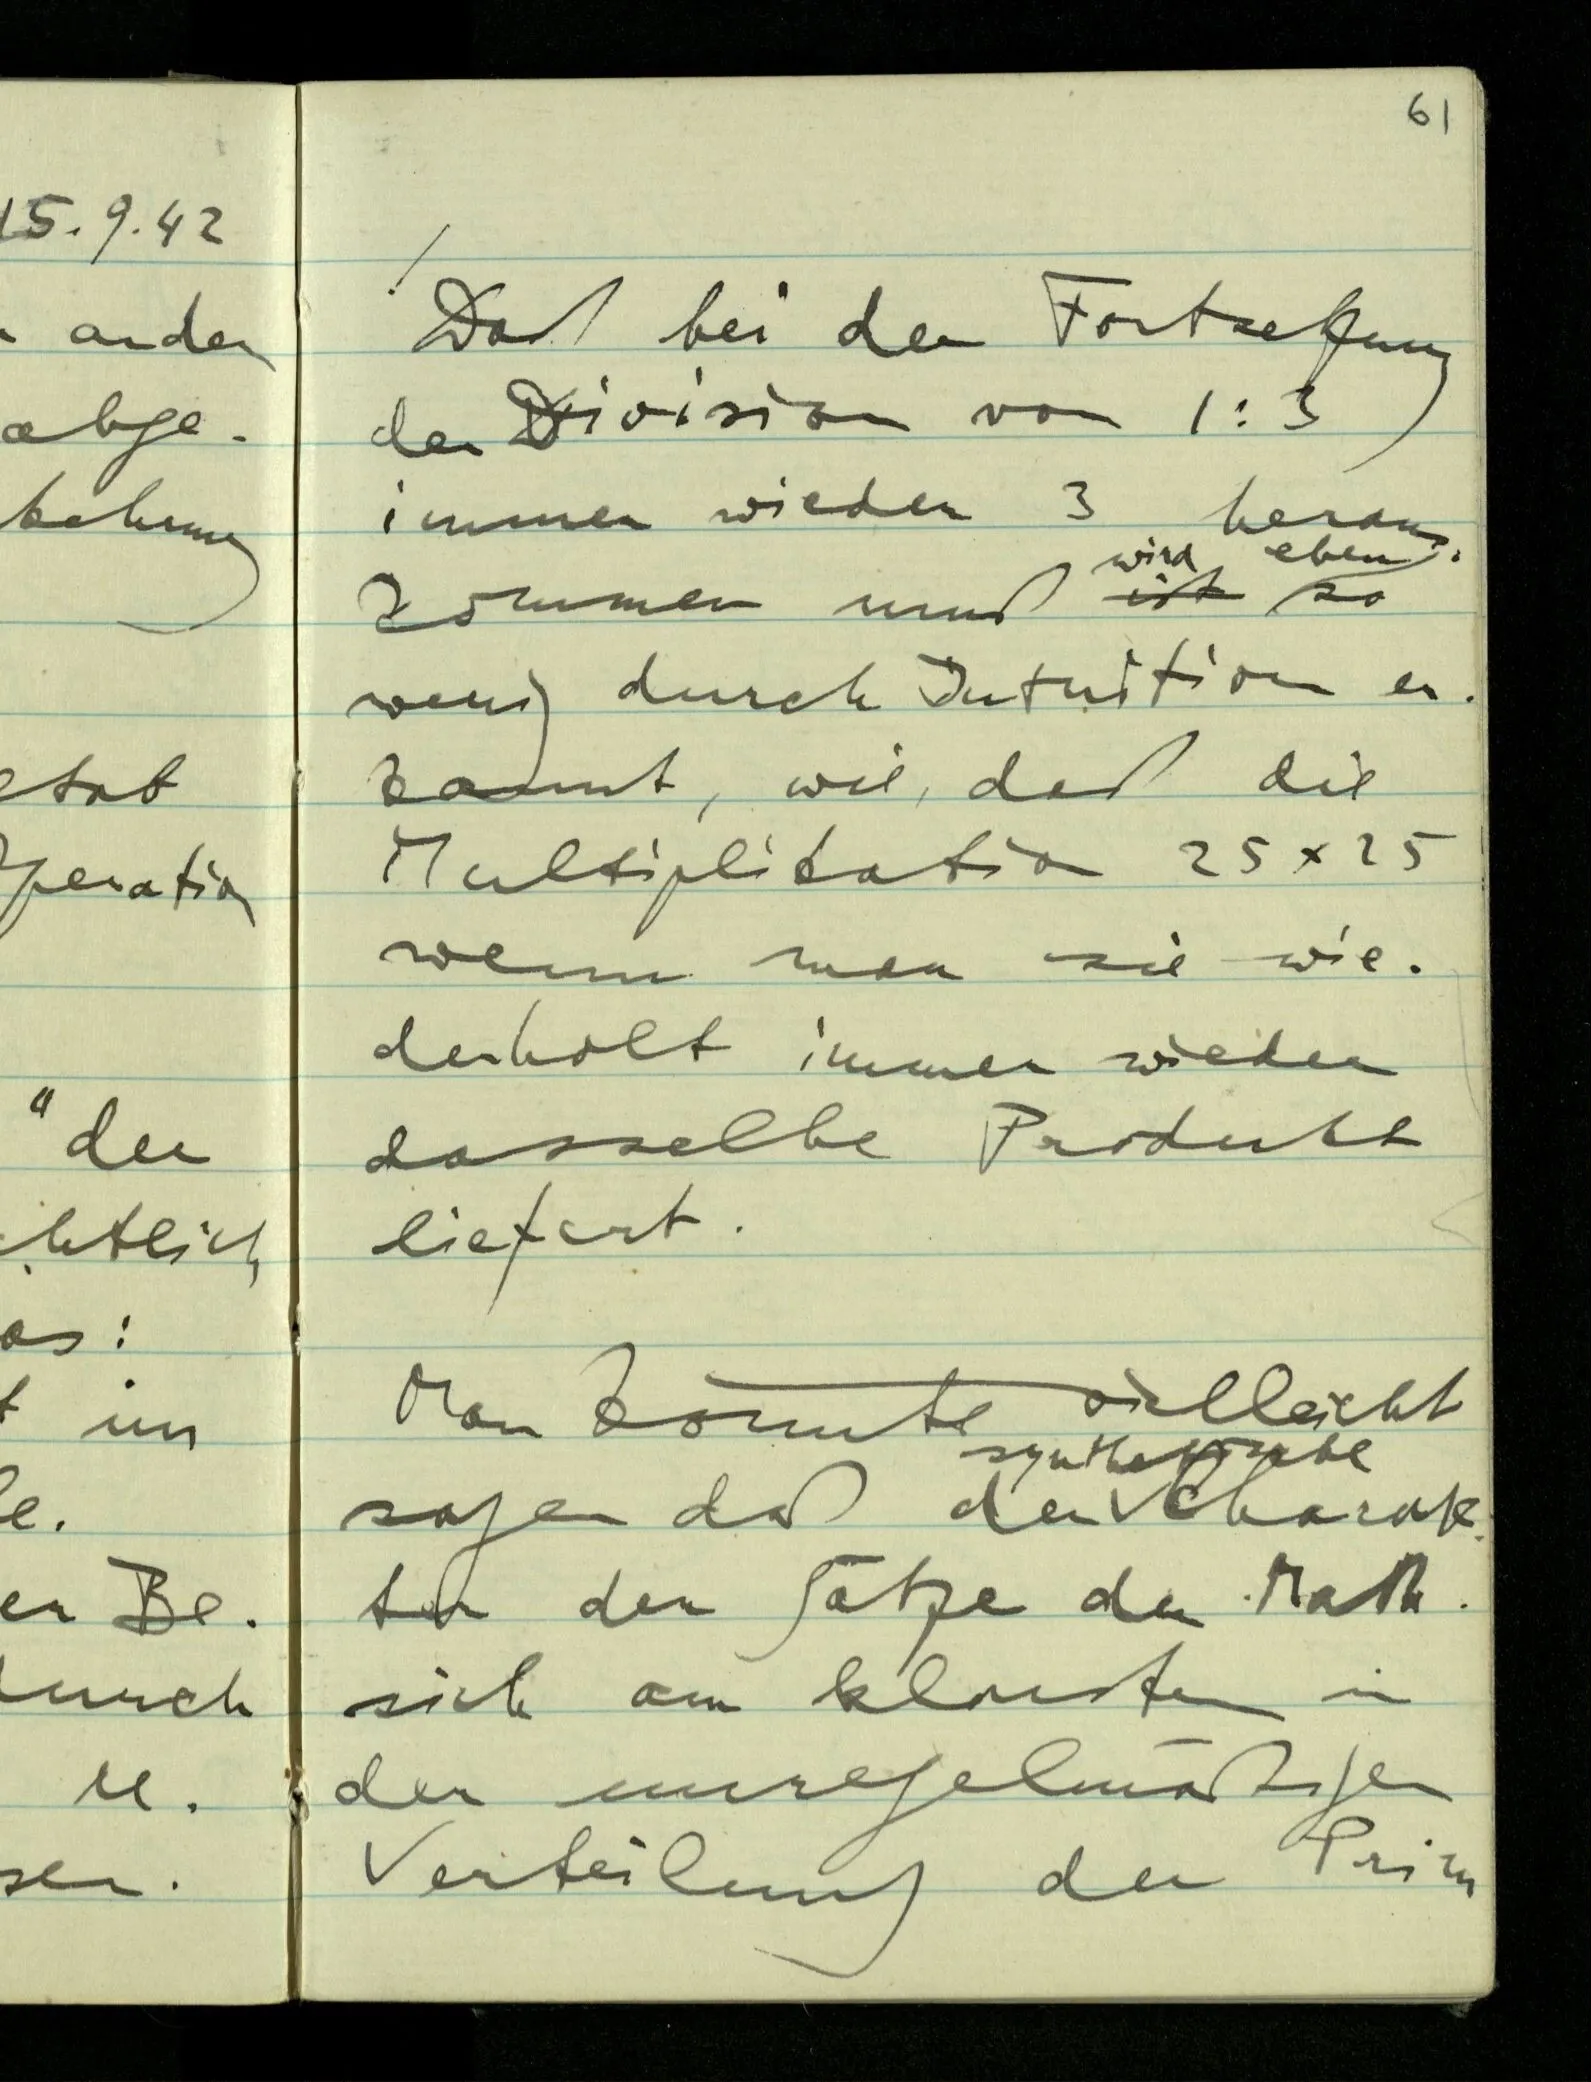 15.9.42
andern
abge-
kehrung
Operation
" der
htlich
as:
t im
le.
er Be-
durch
u.
sen.
61
/
Daß bei der Fortsetzung
der Division von 1:3
immer wieder 3 heraus-
kommen muß wird ist eben so
wenig durch Intuition er-
kannt, wie, daß die
Multiplikation 25 x 25
wenn man sie wie-
derholt immer wieder
dasselbe Produkt
liefert.
Man könnte vielleicht
synthetische
sagen daß der Charak-
ter der Sätze der Math.
sich am klarsten in
der unregelmäßigen
Verteilung der Prim